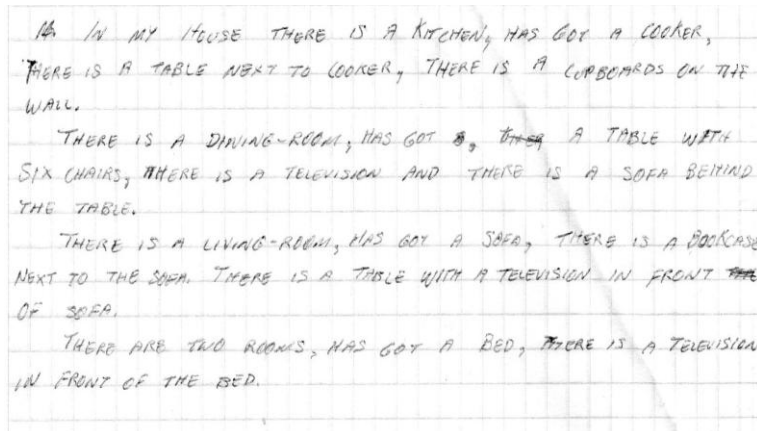 IN MY HOUSE THERE IS A KITCHEN, HAS GOT A COOKER,
THERE IS A TABLE NEXT TO COOKER, THERE IS A CUPBOARDS ON THE
WALL.
THERE IS A DINING-ROOM, HAS GOT , A TABLE WITH
SIX CHAIRS, THERE IS A TELEVISION AND THERE IS A SOFA BEHIND
THE TABLE.
THERE IS A LIVING-ROOM, HAS GOT A SOFA, THERE IS A BOOKCASE
NEXT TO THE SOFA. THERE IS A TABLE WITH A TELEVISION IN FRONT
OF SOFA.
THERE ARE TWO ROOMS, HAS GOT A BED, THERE IS A TELEVISION
IN FRONT OF THE BED.